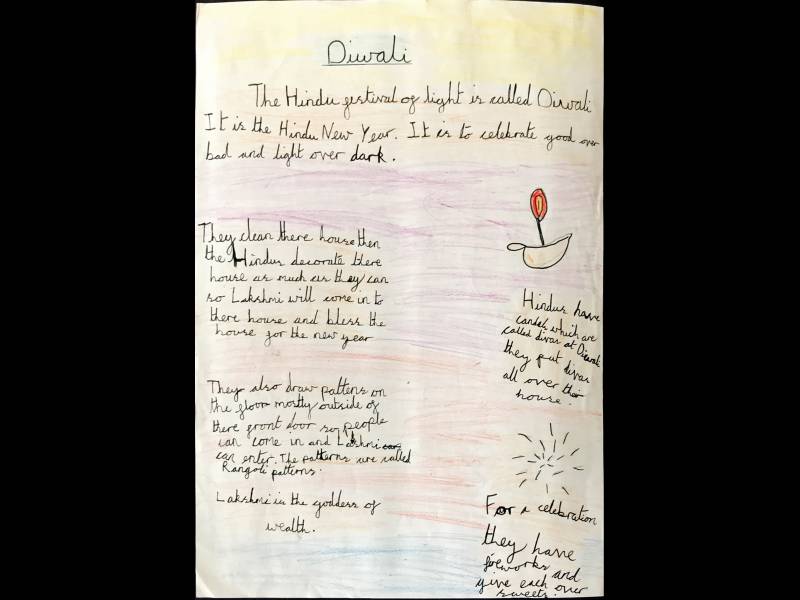 Diwali
The Hindu festival of light is called Diwali
It is the Hindu New Year. It is to celebrate good over
bad and light over dark.
They clean there house then
the Hindus decorate there
house as much as they can
so Lakshmi will come in to
there house and bless the
house for the new year
They also draw pattens on
the floor mostly outside of
there front door so people
can come in and Lakshmi can
can enter. The patterns are called
Rangoli patterns.
Lakshmi is the goddess of
wealth.
Hindus have
candels which are
called divas at Diwali
they put divas
all over their
house.
For a celebration
they have
fireworks and
give each over
sweets.